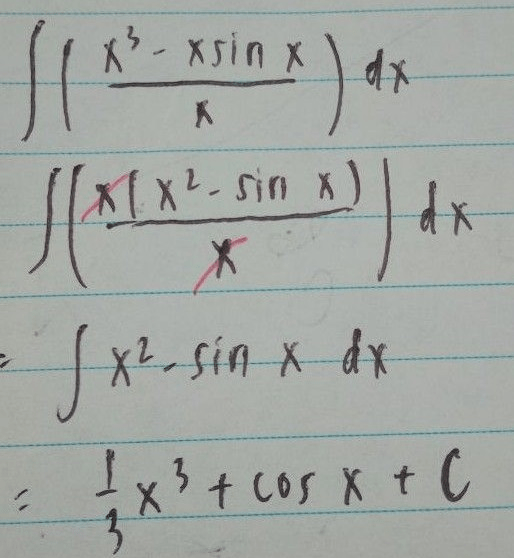 ∫ ( (x³ - x sin x) / x ) dx
∫ ( x( x² - sin x) / x ) dx
= ∫ x² - sin x dx
= 1/3 x³ + cos x + C